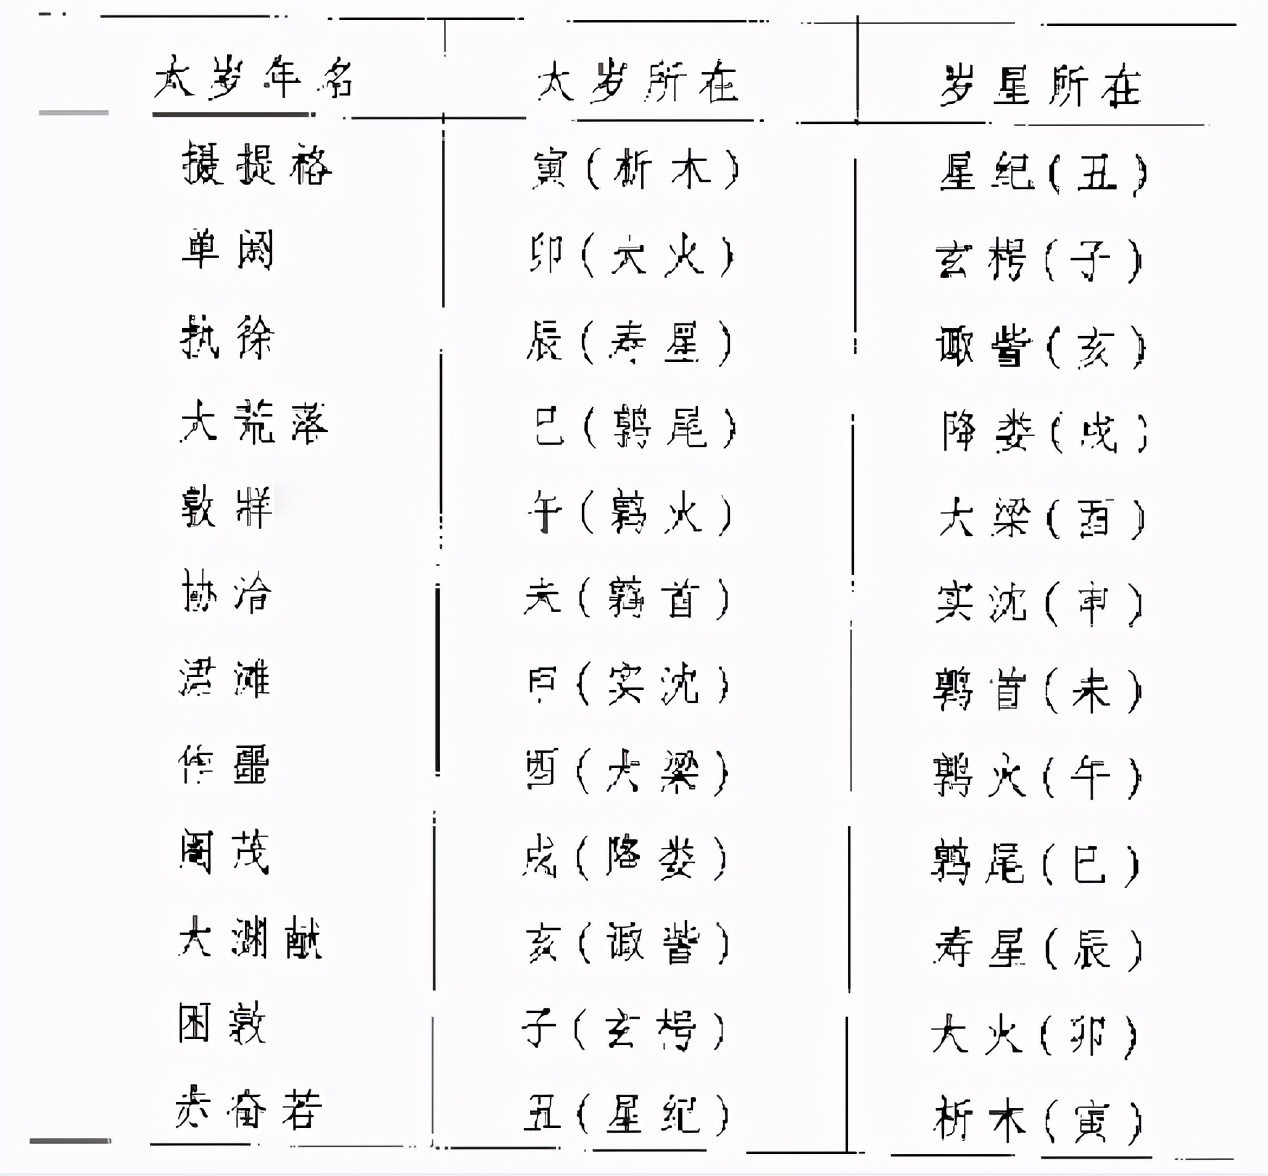 太岁年名 太岁所在 岁星所在
摄提格 寅(析木) 星纪(丑)
单阏 卯(大火) 玄枵(子)
执徐 辰(寿星) 诹訾(亥)
大荒落 巳(鹑尾) 降娄(戌)
敦牂 午(鹑火) 大梁(酉)
协洽 未(鹑首) 实沈(申)
涒滩 申(实沈) 鹑首(未)
作噩 酉(大梁) 鹑火(午)
阉茂 戌(降娄) 鹑尾(巳)
大渊献 亥(诹訾) 寿星(辰)
困敦 子(玄枵) 大火(卯)
赤奋若 丑(星纪) 析木(寅)